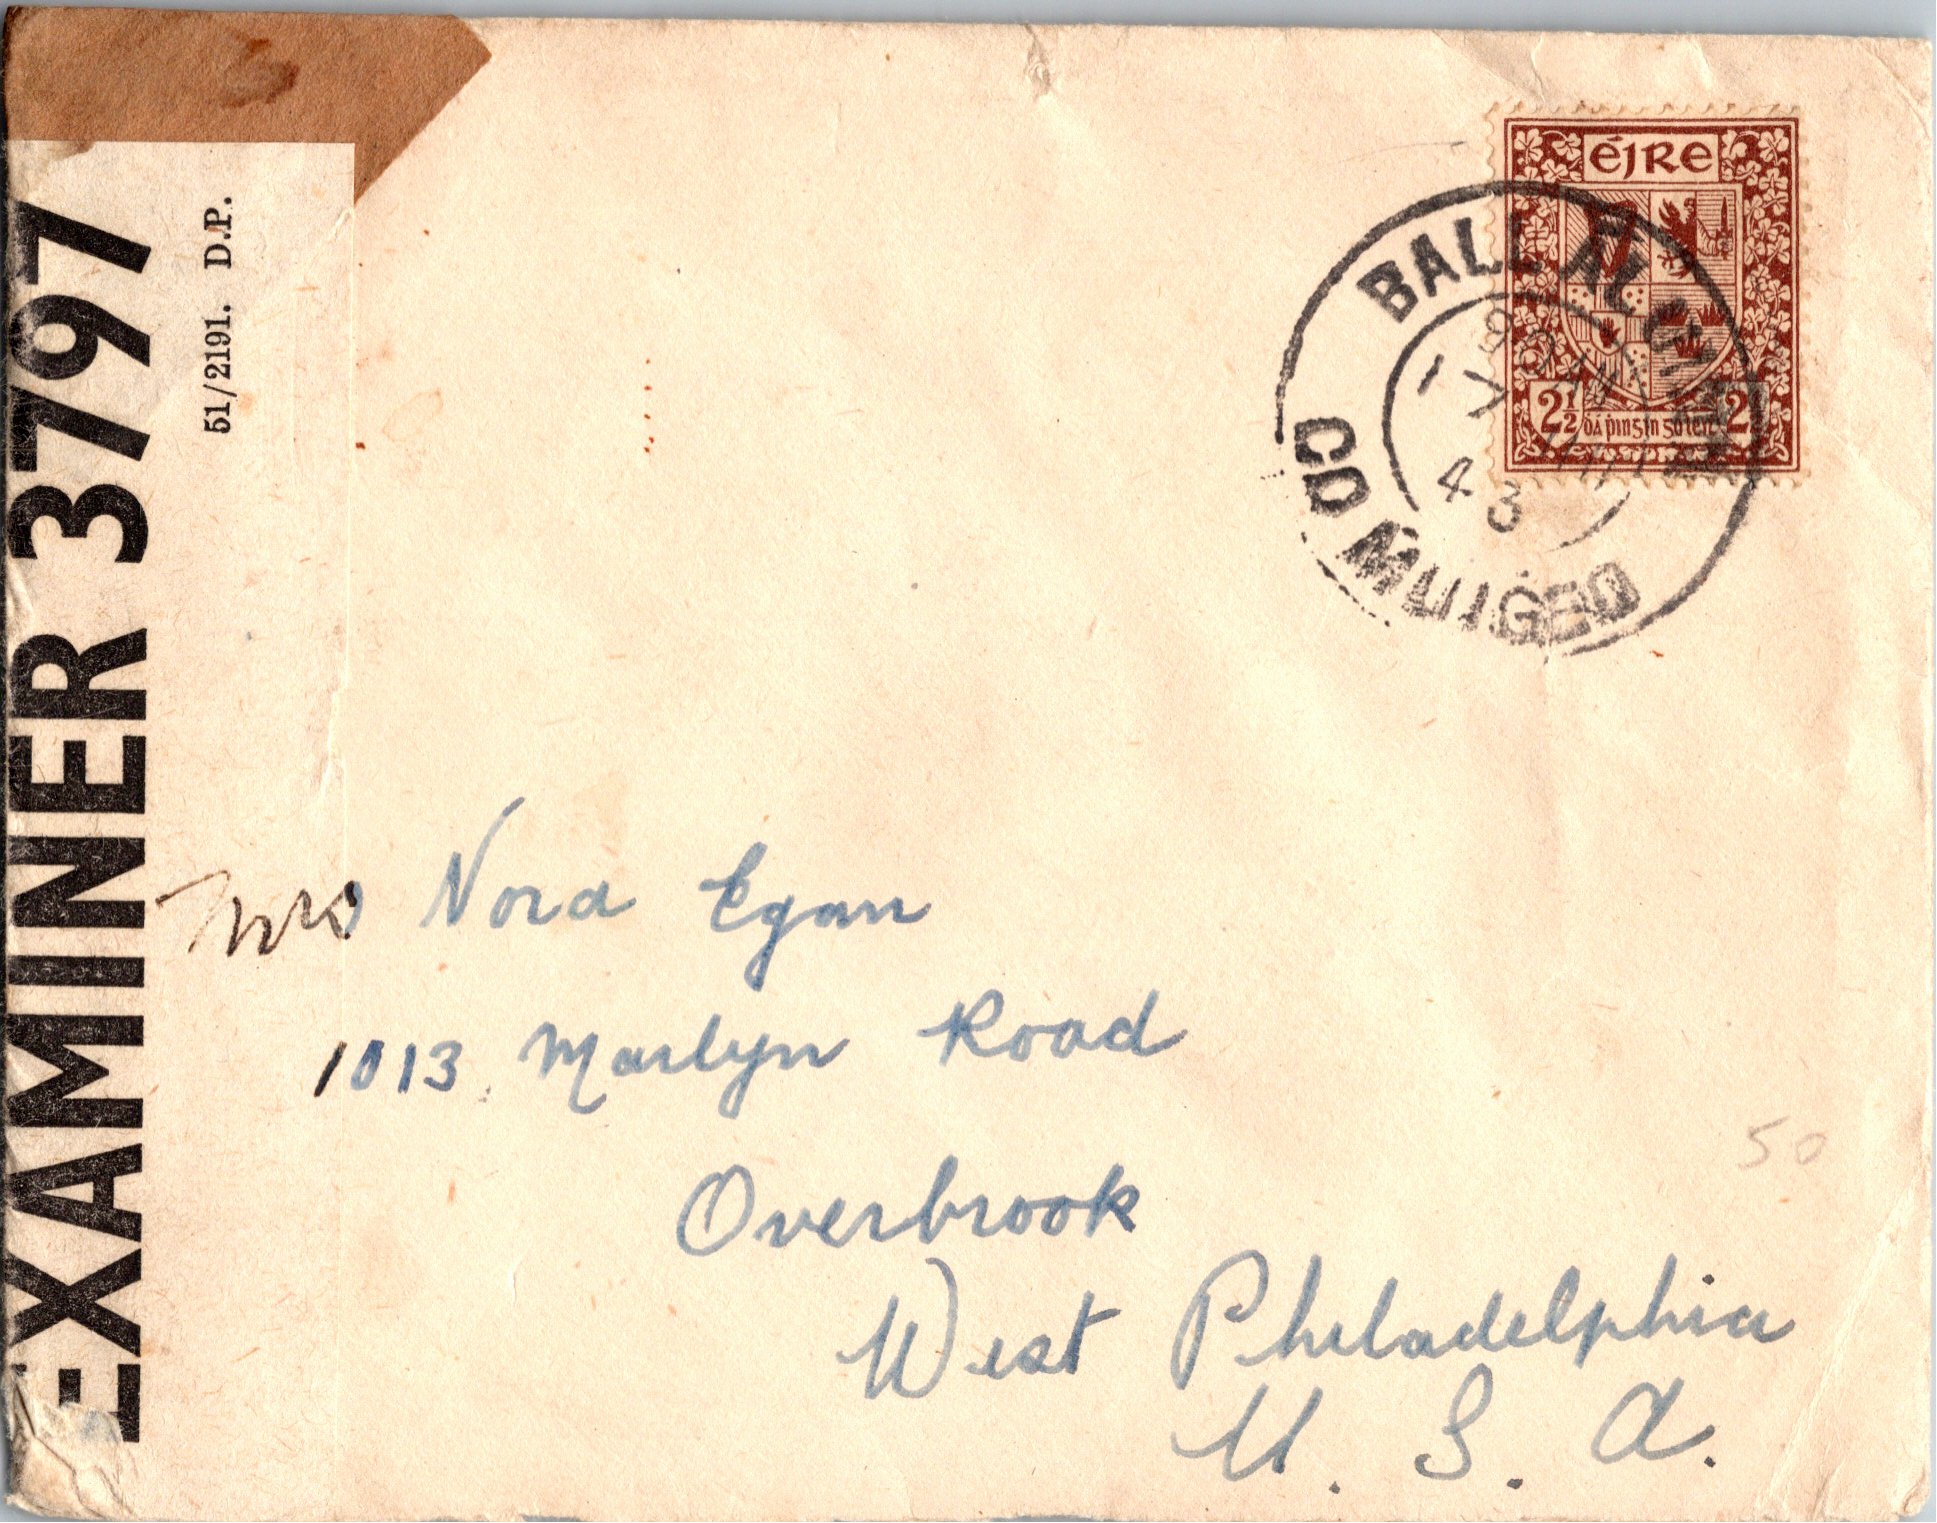 EXAMINER 3797
51/2191. D.P.
éire
2½ dá pingin go leit 2
CO MUIGEO
43
Mrs Nora Egan
1013. Marlyn Road
Overbrook
West Philadelphia
U. S. A.
50